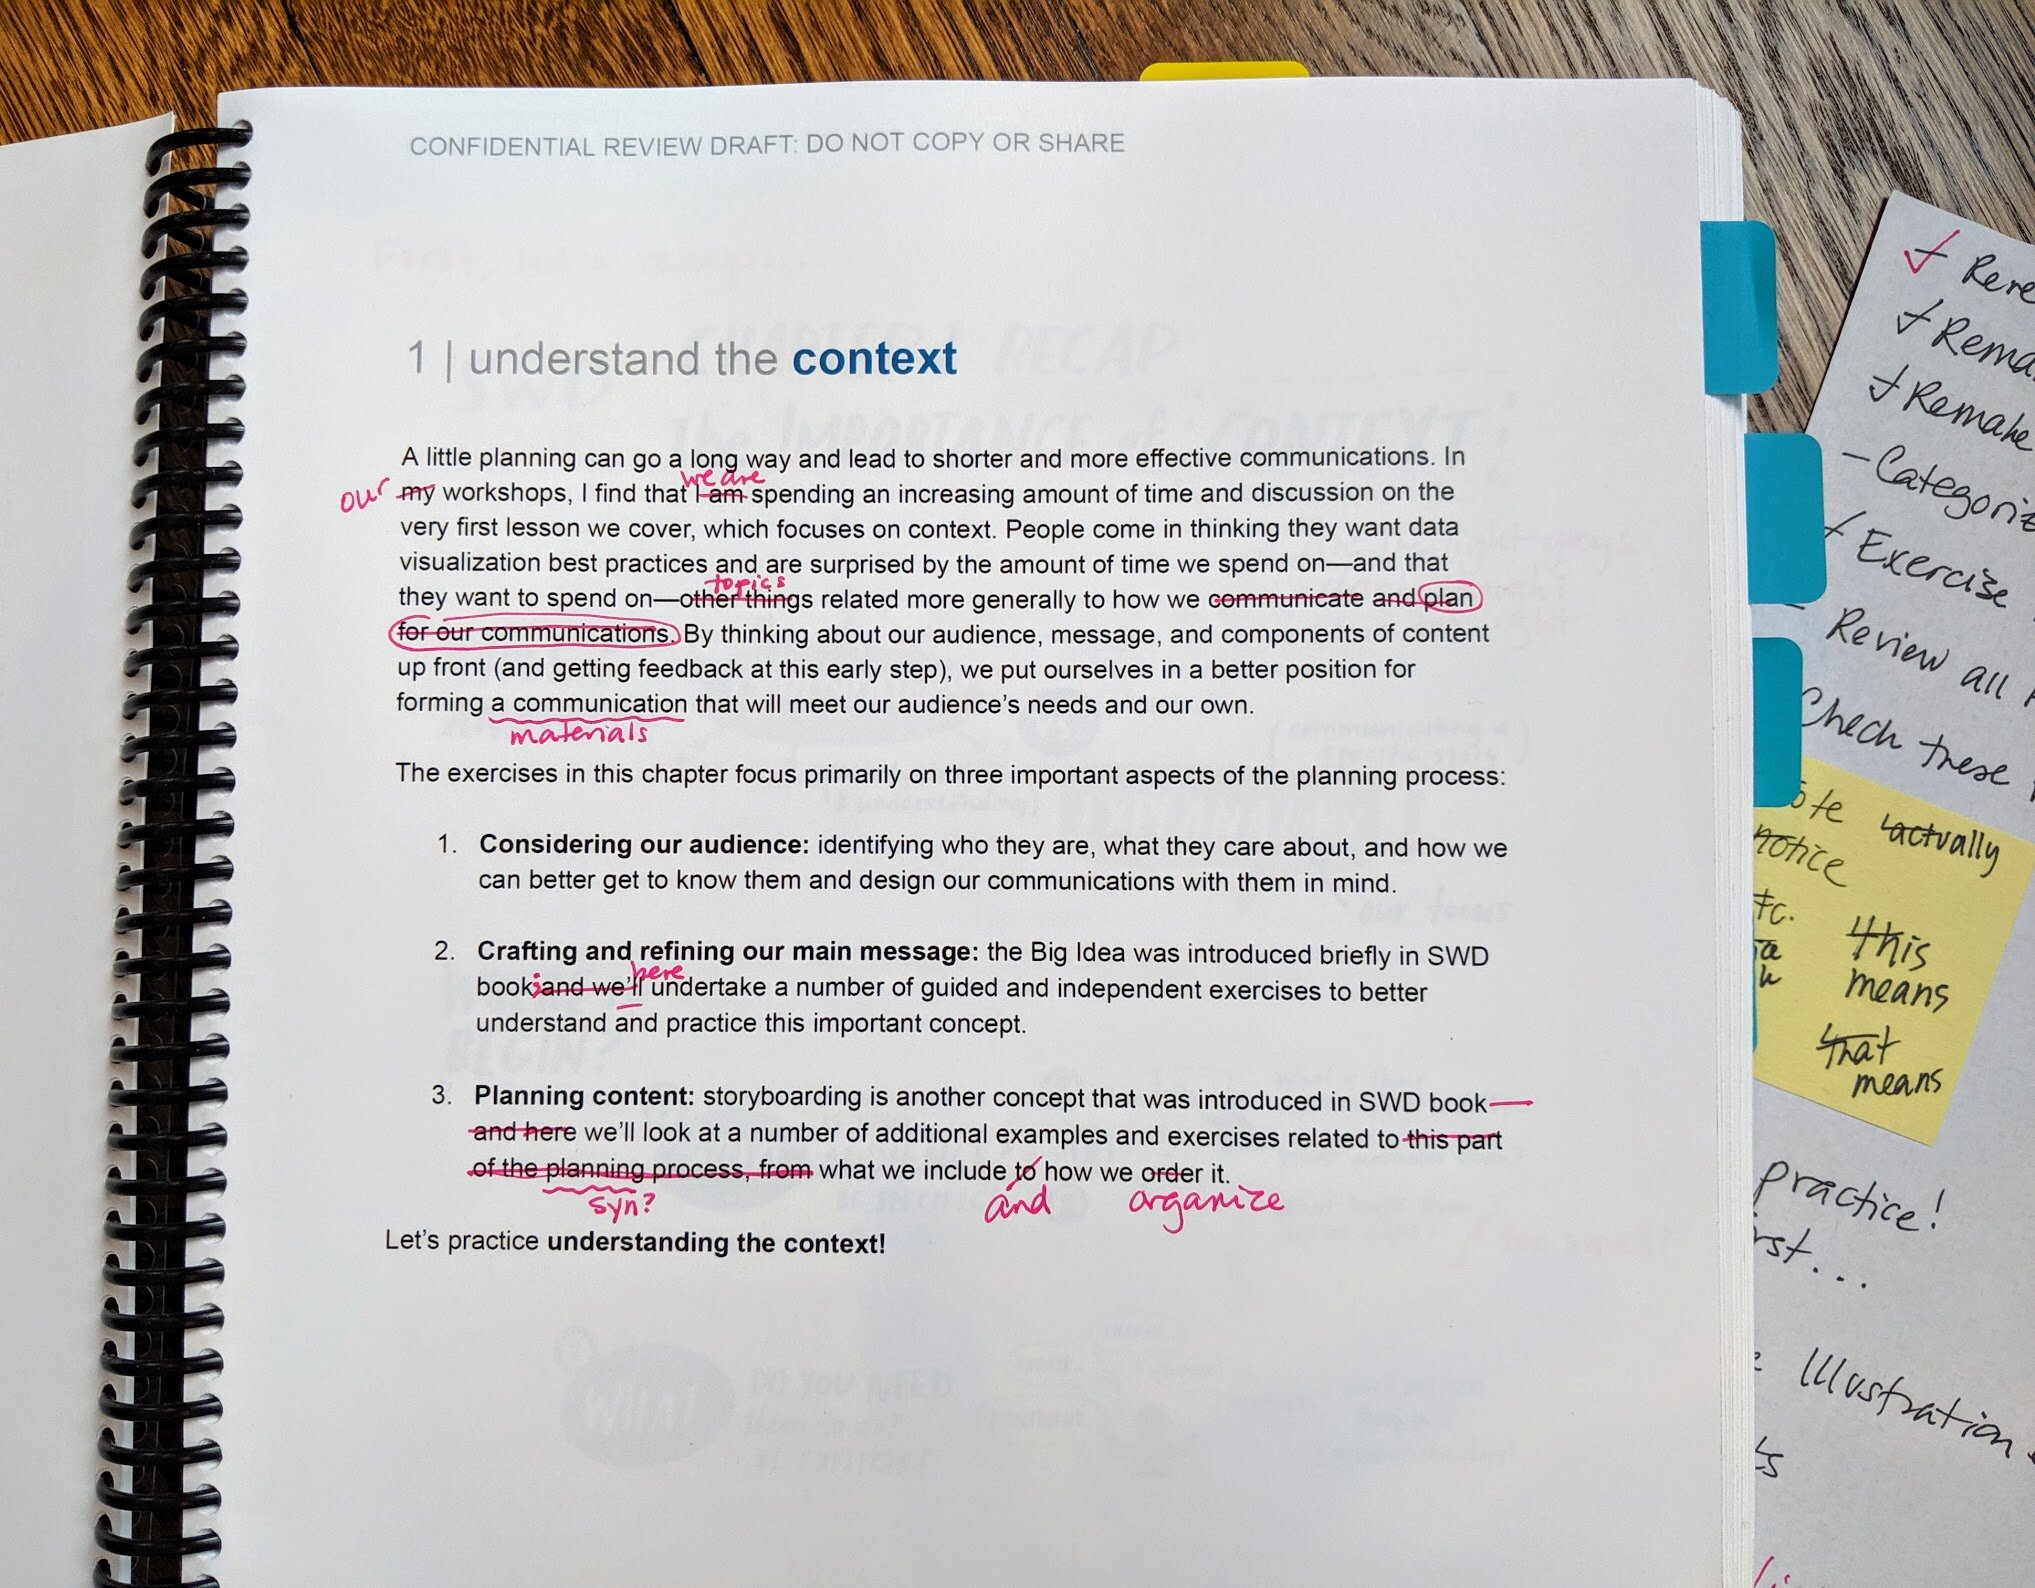 CONFIDENTIAL REVIEW DRAFT: DO NOT COPY OR SHARE
1 | understand the context
A little planning can go a long way and lead to shorter and more effective communications. In
we are
our my workshops, I find that I am spending an increasing amount of time and discussion on the
very first lesson we cover, which focuses on context. People come in thinking they want data
visualization best practices and are surprised by the amount of time we spend on—and that
topics
they want to spend on—other things related more generally to how we communicate and plan
for our communications. By thinking about our audience, message, and components of content
up front (and getting feedback at this early step), we put ourselves in a better position for
forming a communication that will meet our audience's needs and our own.
materials
The exercises in this chapter focus primarily on three important aspects of the planning process:
1. Considering our audience: identifying who they are, what they care about, and how we
can better get to know them and design our communications with them in mind.
2. Crafting and refining our main message: the Big Idea was introduced briefly in SWD
here
book; and we'll undertake a number of guided and independent exercises to better
understand and practice this important concept.
3. Planning content: storyboarding is another concept that was introduced in SWD book—
and here we'll look at a number of additional examples and exercises related to this part
of the planning process, from what we include to how we order it.
syn? and organize
Let's practice understanding the context!
Remake
- Categoriz
Exercise
- Review all
Check these
actually
notice
this
means
that
means
practice!
Illustration